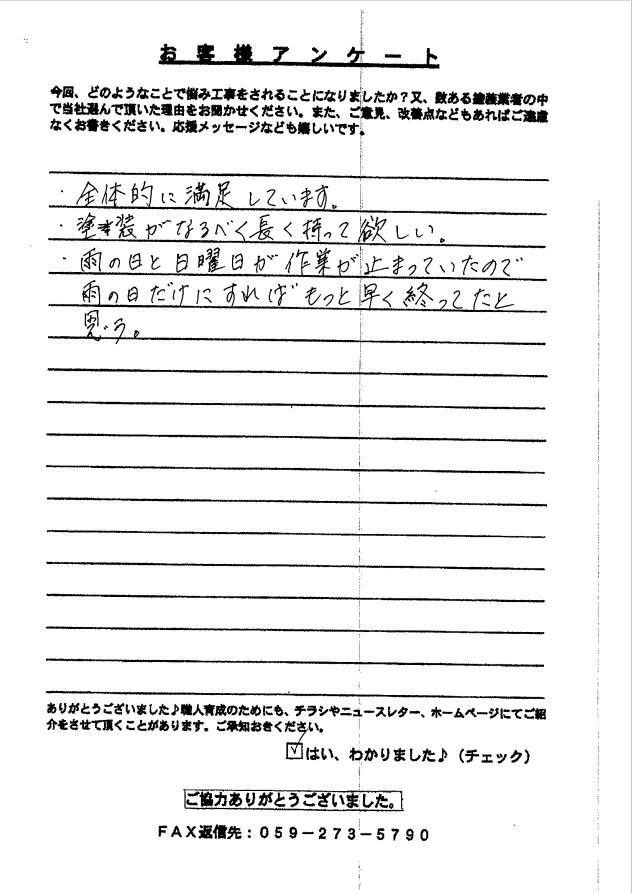 お客様アンケート
今回、どのようなことで悩み工事をされることになりましたか？又、数ある塗装業者の中
で当社選んで頂いた理由をお聞かせください。また、ご意見、改善点などもあればご遠慮
なくお書きください。応援メッセージなども嬉しいです。
・全体的に満足しています。
・塗装がなるべく長く持って欲しい。
・雨の日と日曜日が作業が止まっていたので
雨の日だけにすればもっと早く終ってたと
思う。
ありがとうございました♪職人育成のためにも、チラシやニュースレター、ホームページにてご紹
介をさせて頂くことがあります。ご承知おきください。
☑はい、わかりました♪（チェック）
ご協力ありがとうございました。
FAX返信先：059-273-5790